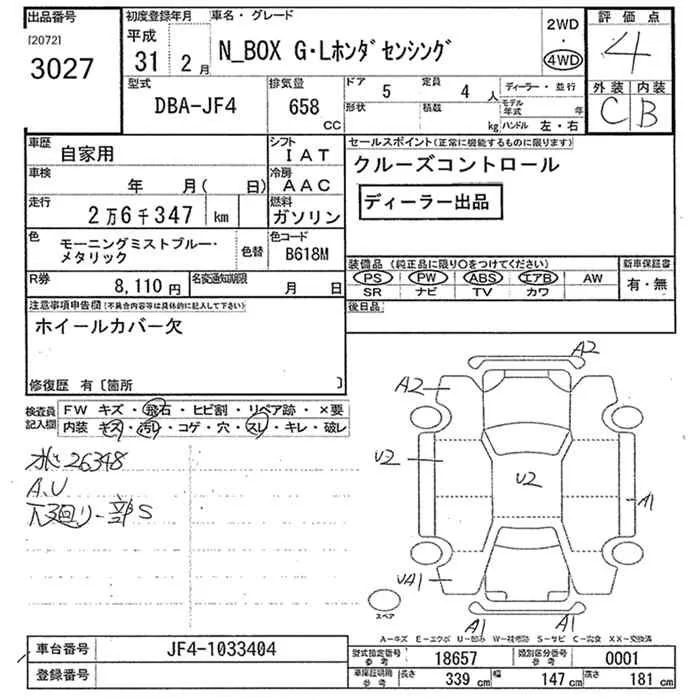 出品番号
[2072]
3027
初度登録年月
平成
31 2 月
車名・グレード
N_BOX G・Lホンダセンシング
2WD
・
4WD
評価点
4
外装 内装
C B
型式
DBA-JF4
排気量
658
CC
ドア 5
定員 4 人
形状
積数 kg
ディーラー・並行
モデル年式 年
ハンドル 左・右
車歴 自家用
シフト IAT
車検 年 月( 日)
冷房 AAC
走行 2万6千347 km
燃料 ガソリン
色 モーニングミストブルー・
メタリック
色替
色コード
B618M
R券 8,110円
名変通知期限 月 日
セールスポイント(正常に機能するものに限ります)
クルーズコントロール
ディーラー出品
装備品(純正品に限り○をつけてください)
PS PW ABS エアB AW
SR ナビ TV カワ
新車保証書
有・無
後日品
注意事項申告欄(不具合内容等は具体的に記入して下さい)
ホイールカバー欠
修復歴 有〔箇所 〕
検査員
記入欄
FW キズ・飛石・ヒビ割・リペア跡・×要
内装 キズ・汚レ・コゲ・穴・スレ・キレ・破レ
26348
A、U
下回リ一部S
A2
A2
U2
U2
A1
UA1
A1
A1
スペア
A-キズ E-エクボ U-凹み W-補修跡 S-サビ C-腐食 XX-交換済
車台番号 JF4-1033404
登録番号
型式指定番号
参考
18657
類別区分番号
参考
0001
車庫証明用
参考
長さ 339 cm
幅 147 cm
高さ 181 cm